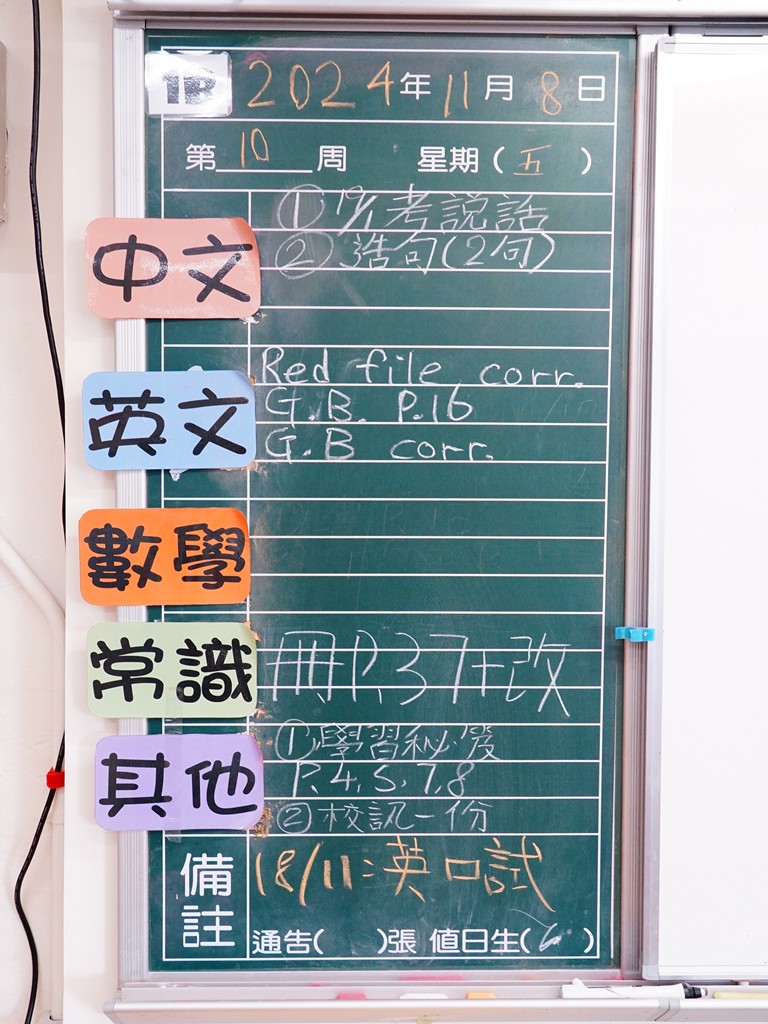 1B 2024年11月8日
第10周 星期(五)
中文
① 19/11考説話
② 造句(2句)
英文
Red file corr.
G.B. P.16
G.B corr.
數學
常識
冊P.37+改
其他
① 學習秘笈
P.4,5,7,8
② 校訊一份
備註
18/11:英口試
通告( )張 值日生( )